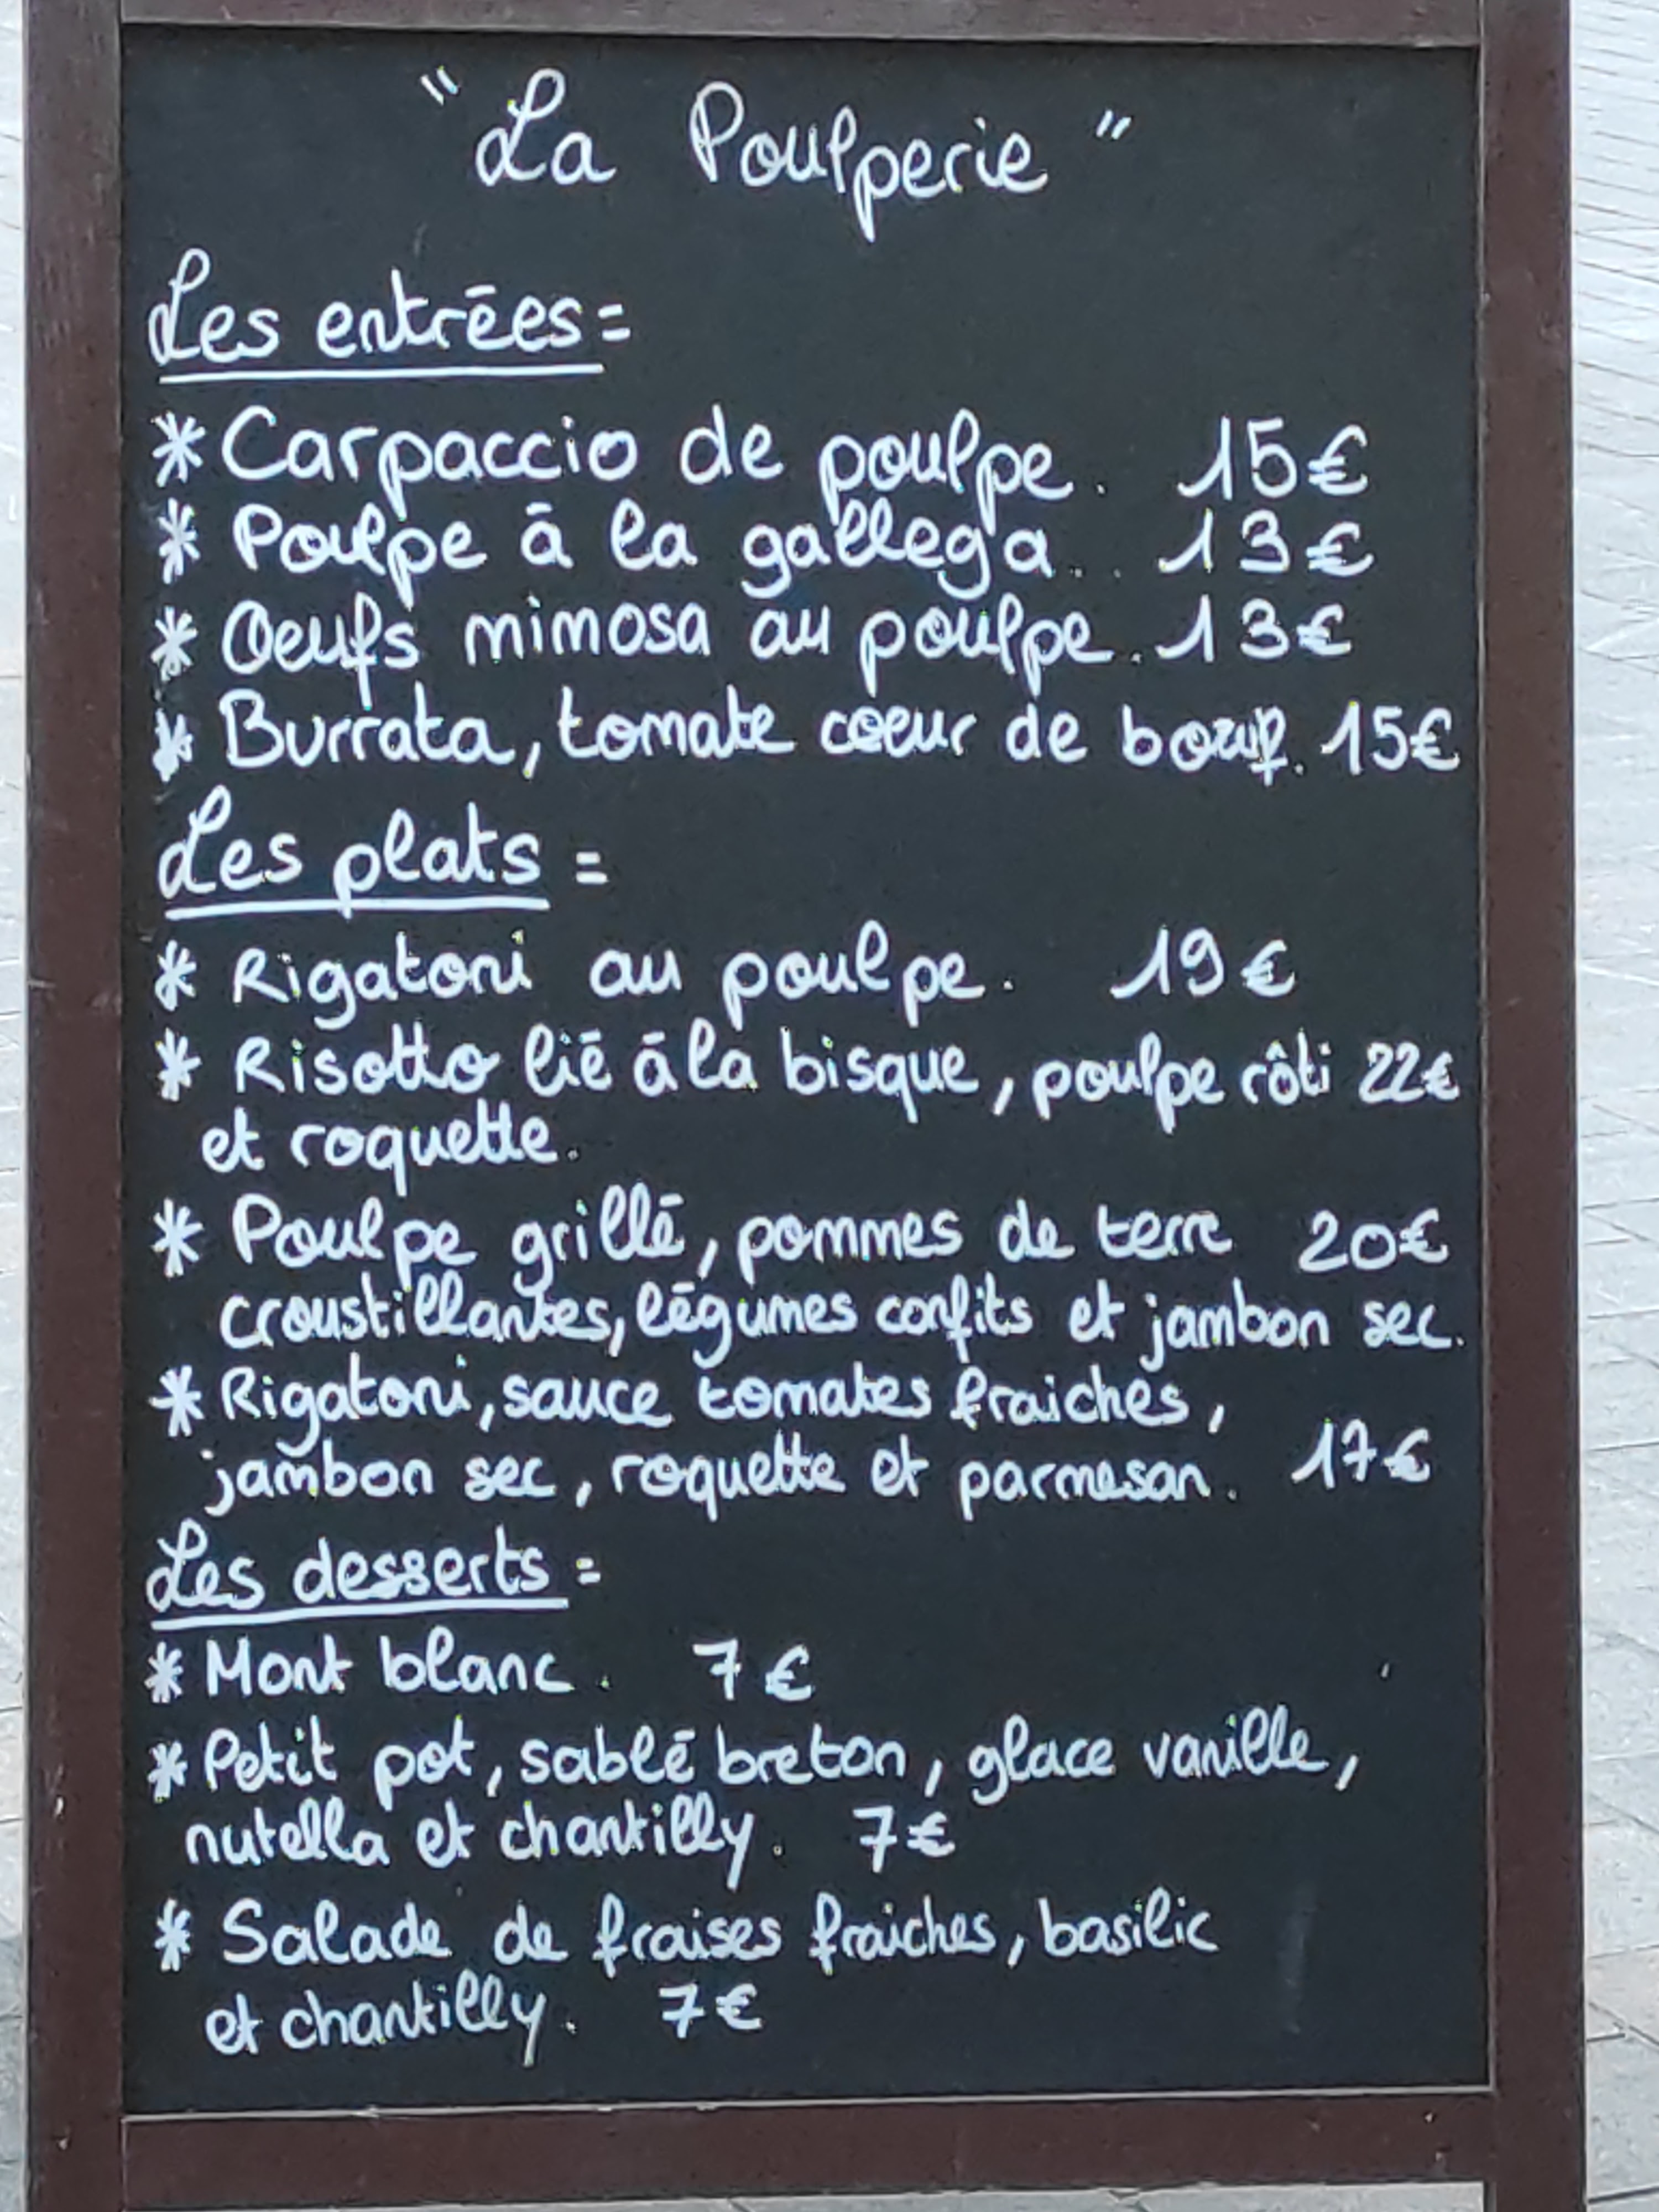 "La Poulperie"
Les entrées =
* Carpaccio de poulpe. 15€
* Poulpe à la gallega.. 13€
* Oeufs mimosa au poulpe. 13€
* Burrata, tomate coeur de boeuf. 15€
Les plats =
* Rigatoni au poulpe. 19€
* Risotto lié à la bisque, poulpe rôti 22€
et roquette.
* Poulpe grillé, pommes de terre 20€
croustillantes, légumes confits et jambon sec.
* Rigatoni, sauce tomates fraiches,
jambon sec, roquette et parmesan. 17€
Les desserts =
* Mont blanc. 7€
* Petit pot, sablé breton, glace vanille,
nutella et chantilly. 7€
* Salade de fraises fraiches, basilic
et chantilly. 7€